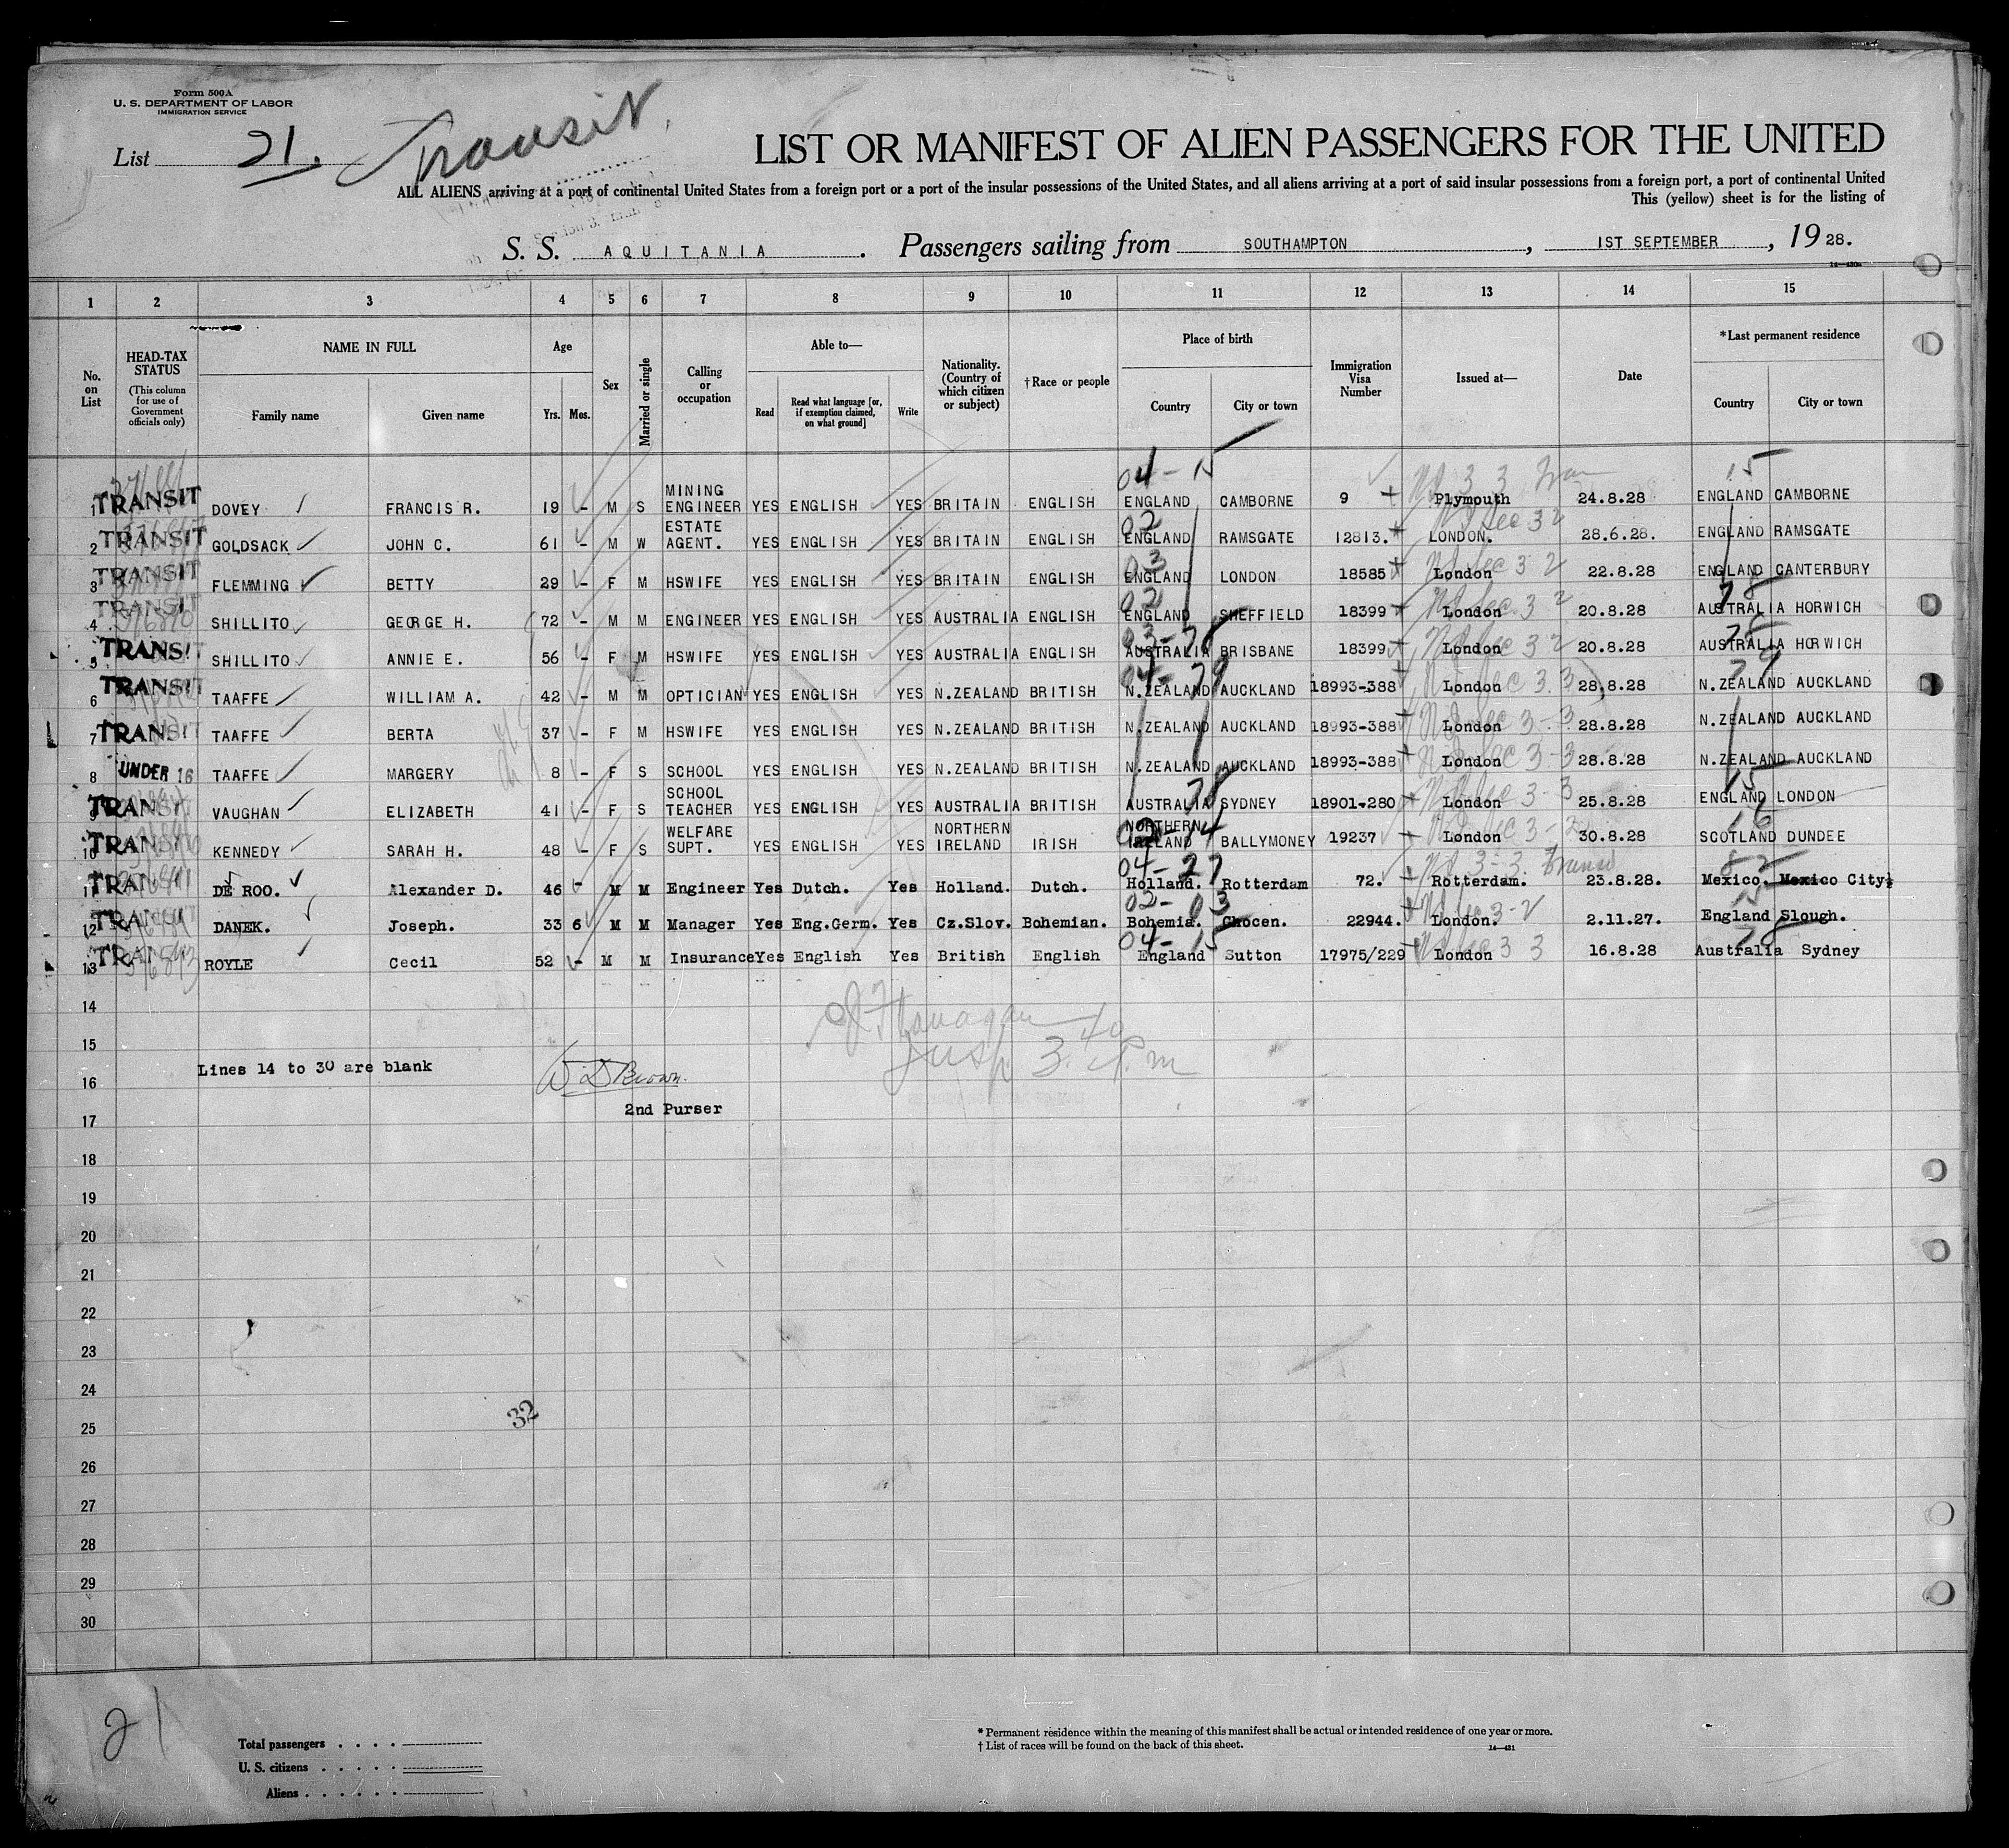 Form 500A
U. S. DEPARTMENT OF LABOR
IMMIGRATION SERVICE
List 21. Transit.
LIST OR MANIFEST OF ALIEN PASSENGERS FOR THE UNITED
ALL ALIENS arriving at a port of continental United States from a foreign port or a port of the insular possessions of the United States, and all aliens arriving at a port of said insular possessions from a foreign port, a port of continental United
This (yellow) sheet is for the listing of
S. S. AQUITANIA. Passengers sailing from SOUTHAMPTON, 1ST SEPTEMBER, 1928.
1 2 3 4 5 6 7 8 9 10 11 12 13 14 15
No. on List
HEAD-TAX STATUS (This column for use of Government officials only)
NAME IN FULL
Family name Given name
Age
Yrs. Mos.
Sex
Married or single
Calling or occupation
Able to—
Read Read what language [or, if exemption claimed, on what ground] Write
Nationality. (Country of which citizen or subject)
†Race or people
Place of birth
Country City or town
Immigration Visa Number
Issued at—
Date
*Last permanent residence
Country City or town
1 TRANSIT DOVEY FRANCIS R. 19 - M S MINING ENGINEER YES ENGLISH YES BRITAIN ENGLISH 04-15 ENGLAND CAMBORNE 9 Plymouth 24.8.28 15 ENGLAND CAMBORNE
2 TRANSIT GOLDSACK JOHN C. 61 - M W ESTATE AGENT. YES ENGLISH YES BRITAIN ENGLISH 02 ENGLAND RAMSGATE 12813. LONDON. 28.6.28. ENGLAND RAMSGATE
3 TRANSIT FLEMMING BETTY 29 - F M HSWIFE YES ENGLISH YES BRITAIN ENGLISH 03 ENGLAND LONDON 18585 London 22.8.28 ENGLAND CANTERBURY
4 TRANSIT SHILLITO GEORGE H. 72 - M M ENGINEER YES ENGLISH YES AUSTRALIA ENGLISH 02 ENGLAND SHEFFIELD 18399 London 20.8.28 78 AUSTRALIA HORWICH
5 TRANSIT SHILLITO ANNIE E. 56 - F M HSWIFE YES ENGLISH YES AUSTRALIA ENGLISH 03-78 AUSTRALIA BRISBANE 18399 London 20.8.28 78 AUSTRALIA HORWICH
6 TRANSIT TAAFFE WILLIAM A. 42 - M M OPTICIAN YES ENGLISH YES N.ZEALAND BRITISH 04-79 N.ZEALAND AUCKLAND 18993-388 London 28.8.28 79 N.ZEALAND AUCKLAND
7 TRANSIT TAAFFE BERTA 37 - F M HSWIFE YES ENGLISH YES N.ZEALAND BRITISH N.ZEALAND AUCKLAND 18993-388 London 28.8.28 N.ZEALAND AUCKLAND
8 UNDER 16 TAAFFE MARGERY 8 - F S SCHOOL YES ENGLISH YES N.ZEALAND BRITISH N.ZEALAND AUCKLAND 18993-388 London 28.8.28 N.ZEALAND AUCKLAND
9 TRANSIT VAUGHAN ELIZABETH 41 - F S SCHOOL TEACHER YES ENGLISH YES AUSTRALIA BRITISH 78 AUSTRALIA SYDNEY 18901-280 London 25.8.28 15 ENGLAND LONDON
10 TRANSIT KENNEDY SARAH H. 48 - F S WELFARE SUPT. YES ENGLISH YES NORTHERN IRELAND IRISH NORTHERN IRELAND BALLYMONEY 19237 London 30.8.28 16 SCOTLAND DUNDEE
11 TRANSIT DE ROO. Alexander D. 46 - M M Engineer Yes Dutch. Yes Holland. Dutch. 04-27 Holland. Rotterdam 72. Rotterdam. 23.8.28. Mexico. Mexico City.
12 TRANSIT DANEK. Joseph. 33 6 M M Manager Yes Eng.Germ. Yes Cz.Slov. Bohemian. 02-03 Bohemia. Chocen. 22944. London. 2.11.27. 15 England Slough.
13 TRANSIT ROYLE Cecil 52 - M M Insurance Yes English Yes British English 04-15 England Sutton 17975/229 London 16.8.28 78 Australia Sydney
14
15
Lines 14 to 30 are blank
W D Brown.
16
2nd Purser
17
18
19
20
21
22
23
24
32
25
26
27
28
29
30
21
Total passengers
U. S. citizens
Aliens
* Permanent residence within the meaning of this manifest shall be actual or intended residence of one year or more.
† List of races will be found on the back of this sheet.
14—431